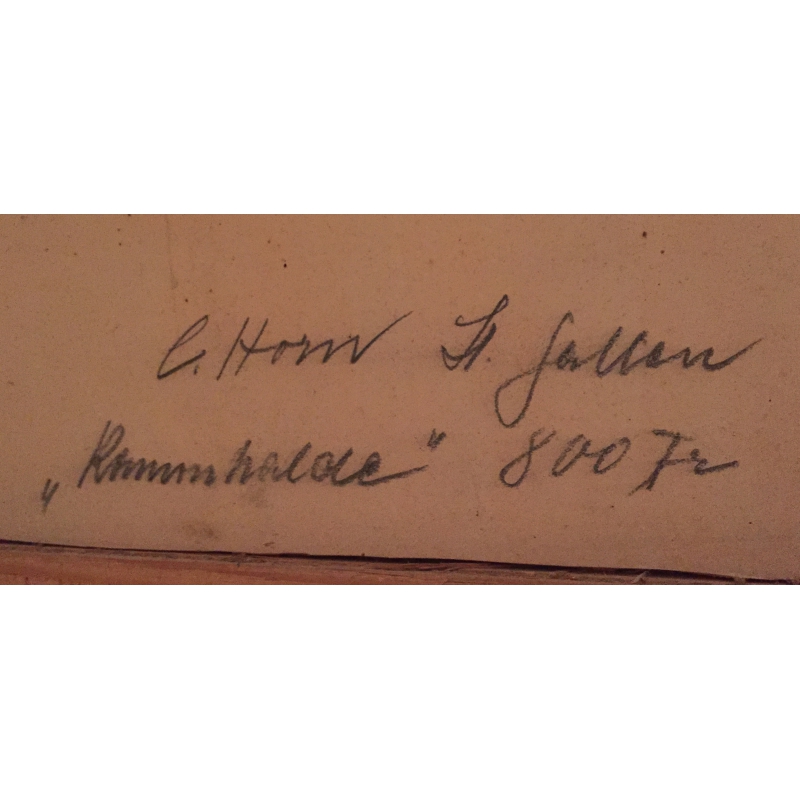 C. Horn St. Gallen
„Rammhalde" 800 Fr